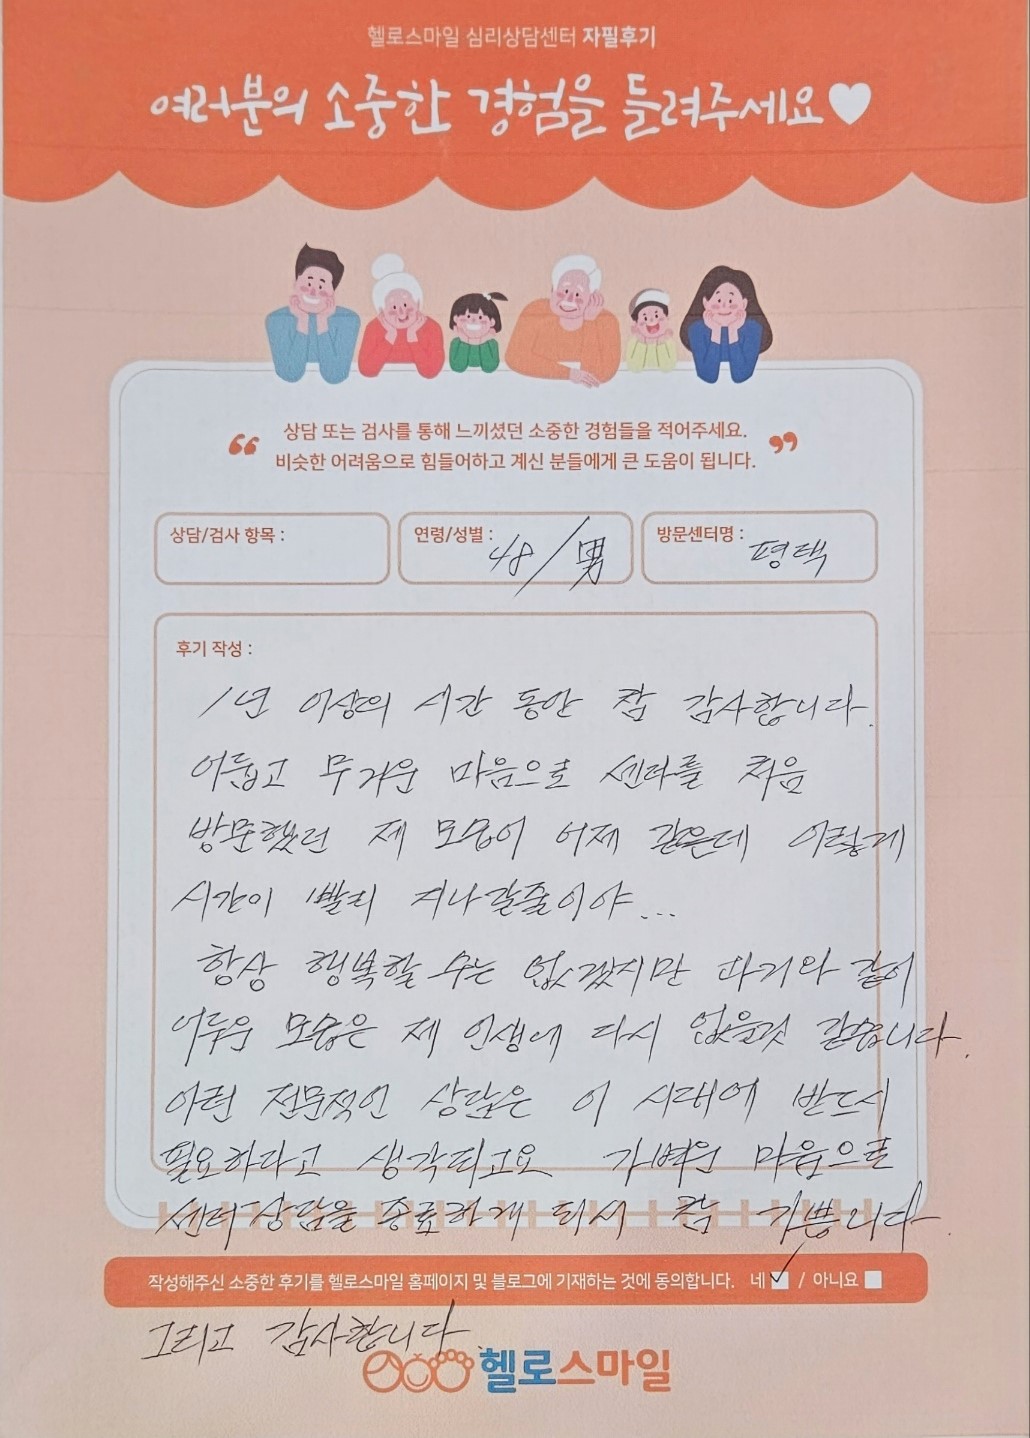 헬로스마일 심리상담센터 자필후기
여러분의 소중한 경험을 들려주세요♥
“ 상담 또는 검사를 통해 느끼셨던 소중한 경험들을 적어주세요. ”
비슷한 어려움으로 힘들어하고 계신 분들에게 큰 도움이 됩니다.
상담/검사 항목 : 연령/성별 : 48/男 방문센터명 : 평택
후기 작성 :
1년 이상의 시간 동안 참 감사합니다.
어둡고 무거운 마음으로 센타를 처음
방문했던 제 모습이 어제 같은데 이렇게
시간이 빨리 지나갈줄이야...
항상 행복할 수는 없겠지만 과거와 같이
어두운 모습은 제 인생에 다시 없을것 같습니다.
이런 전문적인 상담은 이 시대에 반드시
필요하다고 생각되고요 가벼운 마음으로
센터상담을 종료하게 되서 참 기쁩니다.
작성해주신 소중한 후기를 헬로스마일 홈페이지 및 블로그에 기재하는 것에 동의합니다. 네 ✓ / 아니요
그리고 감사합니다.
헬로스마일